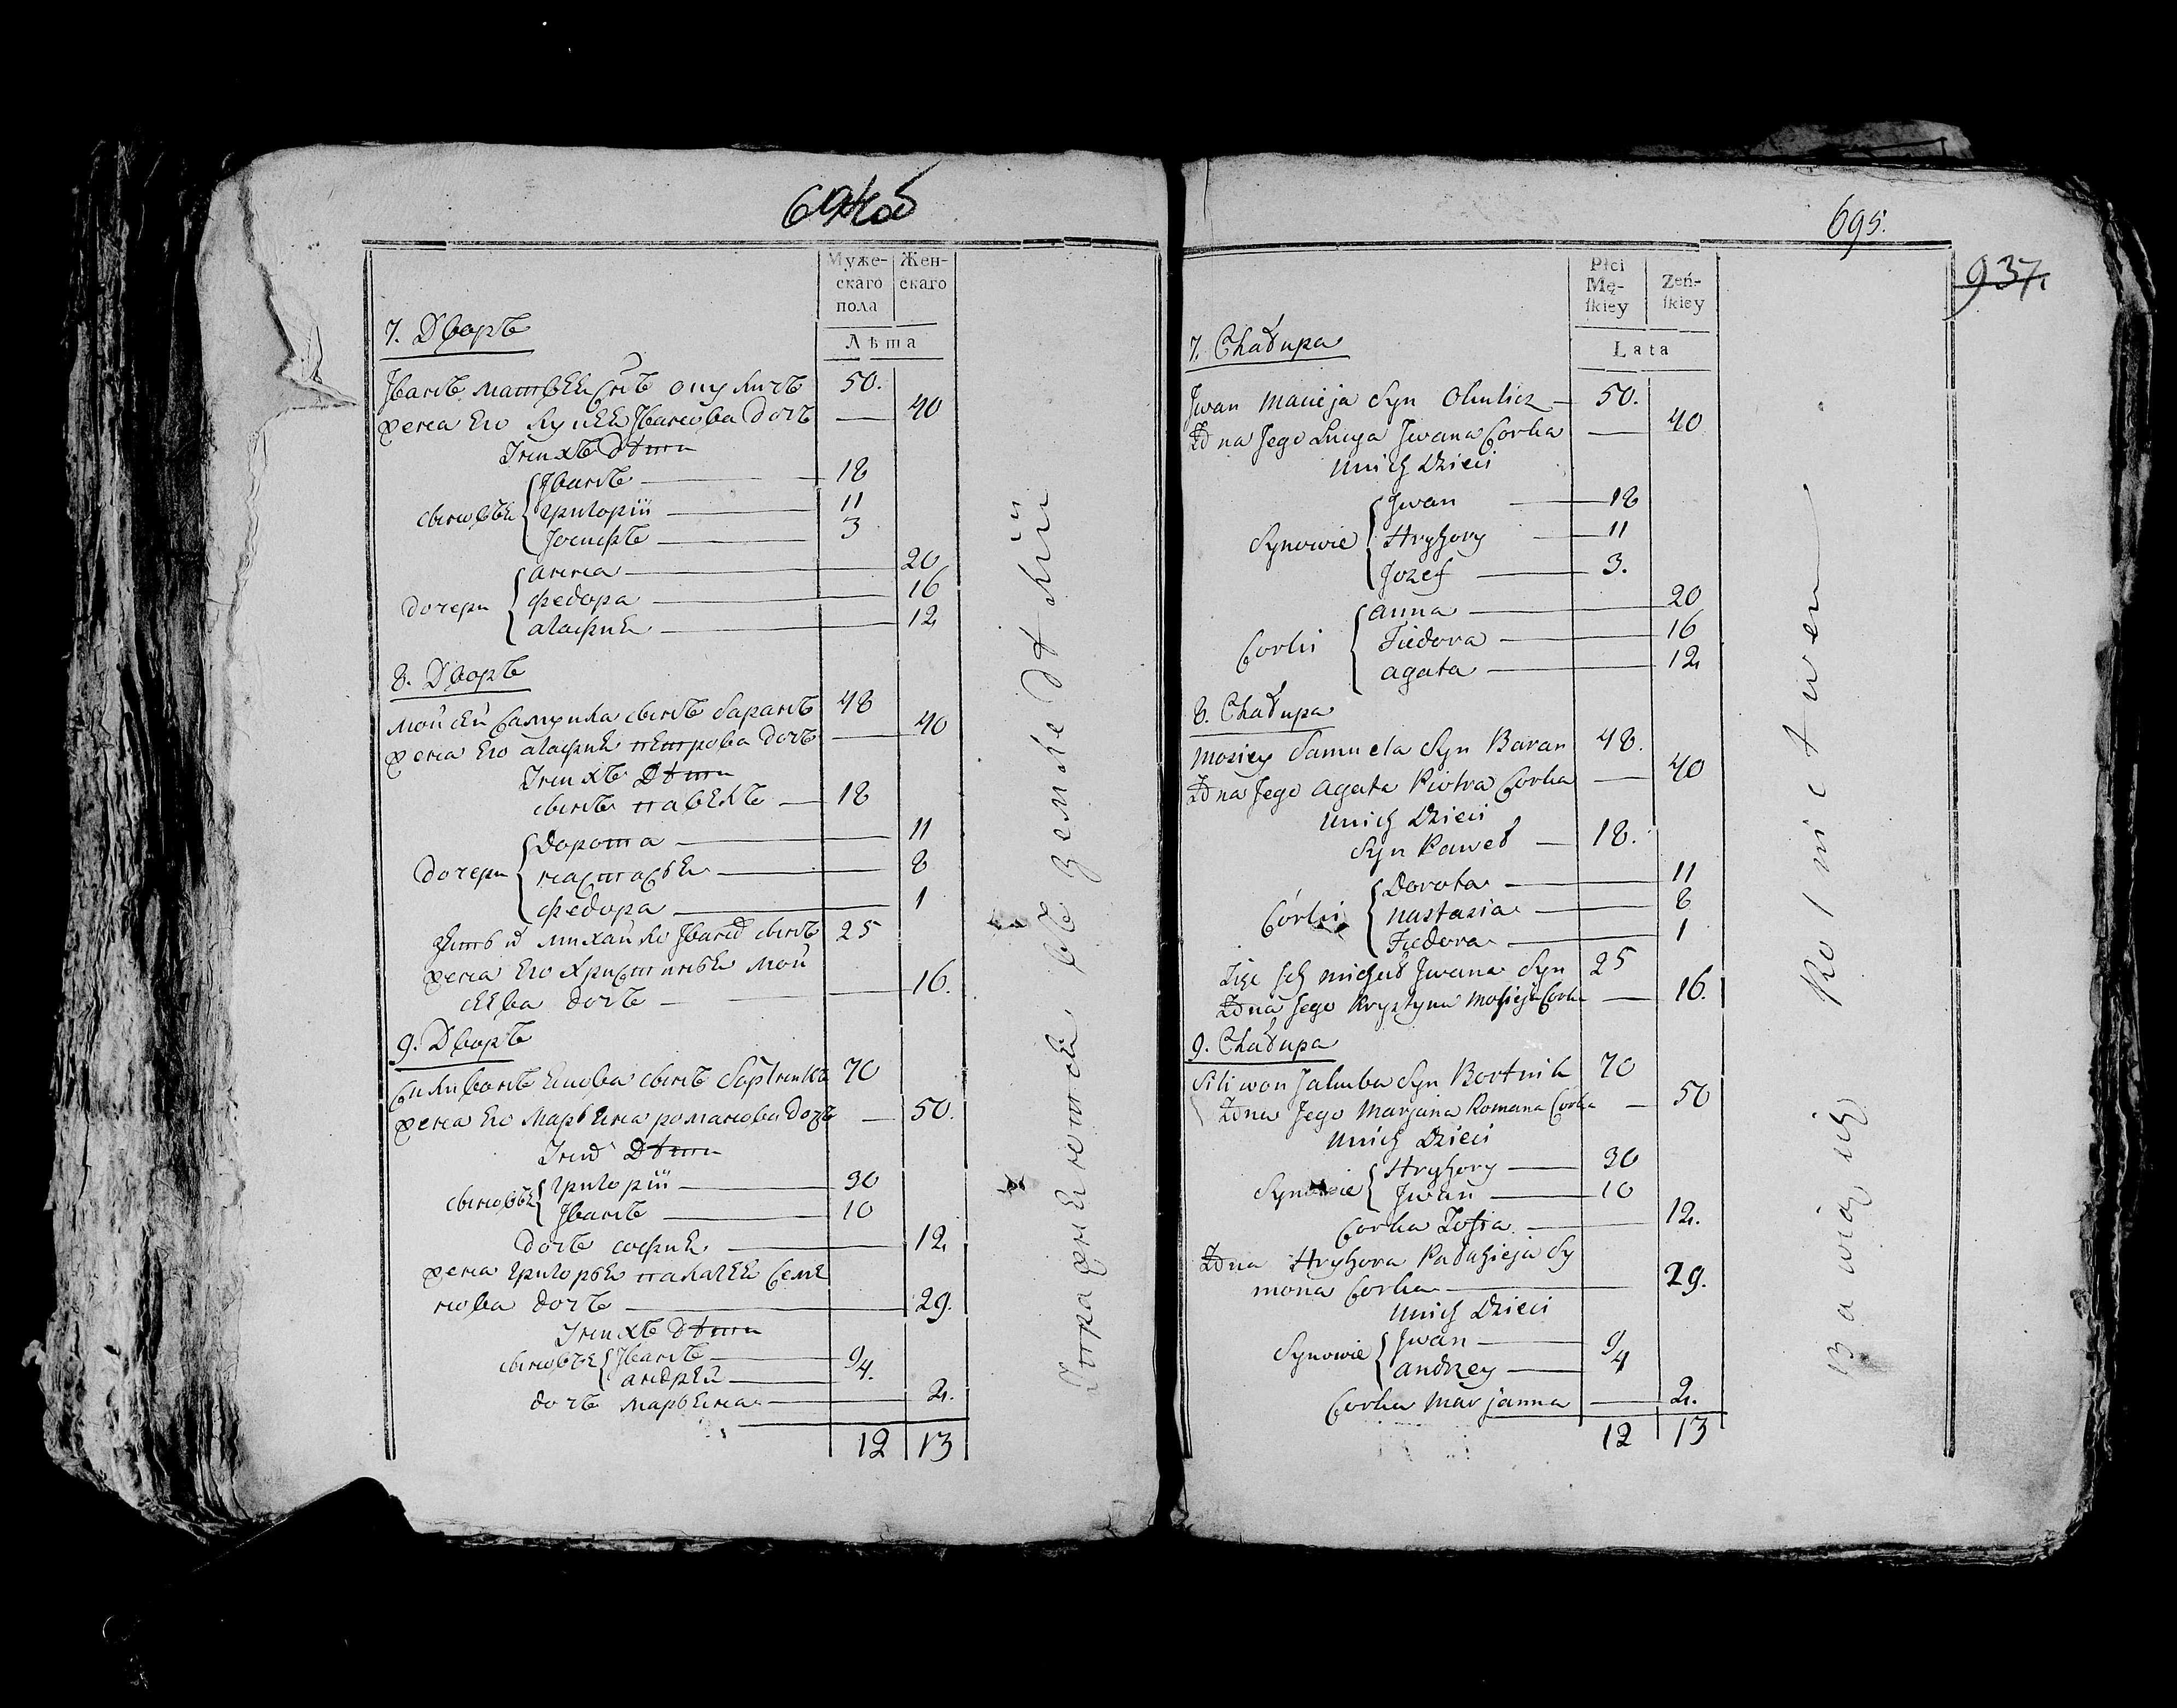 Муже-
скаго
пола
Жен-
скаго
Лѣта
7. Дворъ
Иванъ матвеея Сынъ 50.
жена Его Луцея Иванова Дочъ — 40
У них Дѣти
Иванъ — 18
сыновья Григорій — 11
Іосифъ — 3
анна — 20
дочери федора — 16
агафия — 12
8. Дворъ
мойсей Самуила сынъ баранъ 48
жена Его агафия петрова дочъ — 40
У нихъ Дѣти
сынъ павелъ — 18
Дорота — 11
дочери настасья — 8
федора — 1
зять михайло Ивана сынъ 25
жена Его христинья мой
сеева дочъ — 16.
9. Дворъ
Силивонъ сынъ 70
жена Его Марьяна романова дочъ — 50.
Дѣти
сыновья Григорій — 30
Иванъ — 10
дочъ софия — 12
жена григорья палагея Семе
нова дочъ — 29.
У нихъ дѣти
сыновья Иванъ — 9
андрей — 4.
дочъ марьяна — 2.
12 13
695.
937.
Płci
Mę-
ſkiey
Zeń-
ſkiey
Lata
7. Chałupa
Jwan Macieja Syn — 50.
Żona Jego Lucya Jwana Corka — 40
Unich Dzieci
Jwan — 18
Synowie Hryhory — 11
Jozef — 3.
anna — 20
Corki Fiedora — 16
agata — 12
8. Chałupa
Mosiey Samuela Syn Baran 48.
Żona Jego agata Piotra Corka — 40
Unich Dzieci
Syn Paweł — 18.
Dorota — 11
Córki nastazia — 8
Fiedora — 1
Michał Jwana Syn 25
Żona Jego Krystyna Mosieja Corka — 16.
9. Chałupa
Siliwon Jakuba Syn Bortnik 70
Żona Jego Marjana Romana Corka — 50
Unich Dzieci
Synowie Hryhory — 30
Jwan — 10
Corka Zofia — 12.
Żona Hryhora Sy
mona Corka — 29.
Unich Dzieci
Synowie Jwan — 9
andrzey — 4
Corka Marjanna — 2.
12 13
Bawią się Rolnictwem